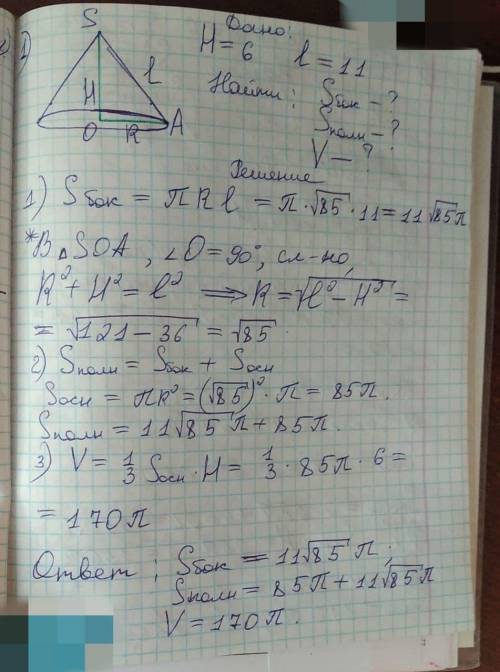 1)
S
H
l
O
R
A
Дано:
H = 6 l = 11
Найти: Sбок - ?
Sполн - ?
V - ?
Решение
1) Sбок = πRl = π·√85·11 = 11√85π
*В △SOA, ∠O = 90°, сл-но,
R² + H² = l² ⟹ R = √l² - H² =
= √121 - 36 = √85.
2) Sполн = Sбок + Sосн
Sосн = πR² = (√85)²·π = 85π.
Sполн = 11√85π + 85π.
3) V = 1/3 Sосн·H = 1/3·85π·6 =
= 170π
Ответ: Sбок = 11√85π;
Sполн = 85π + 11√85π
V = 170π.